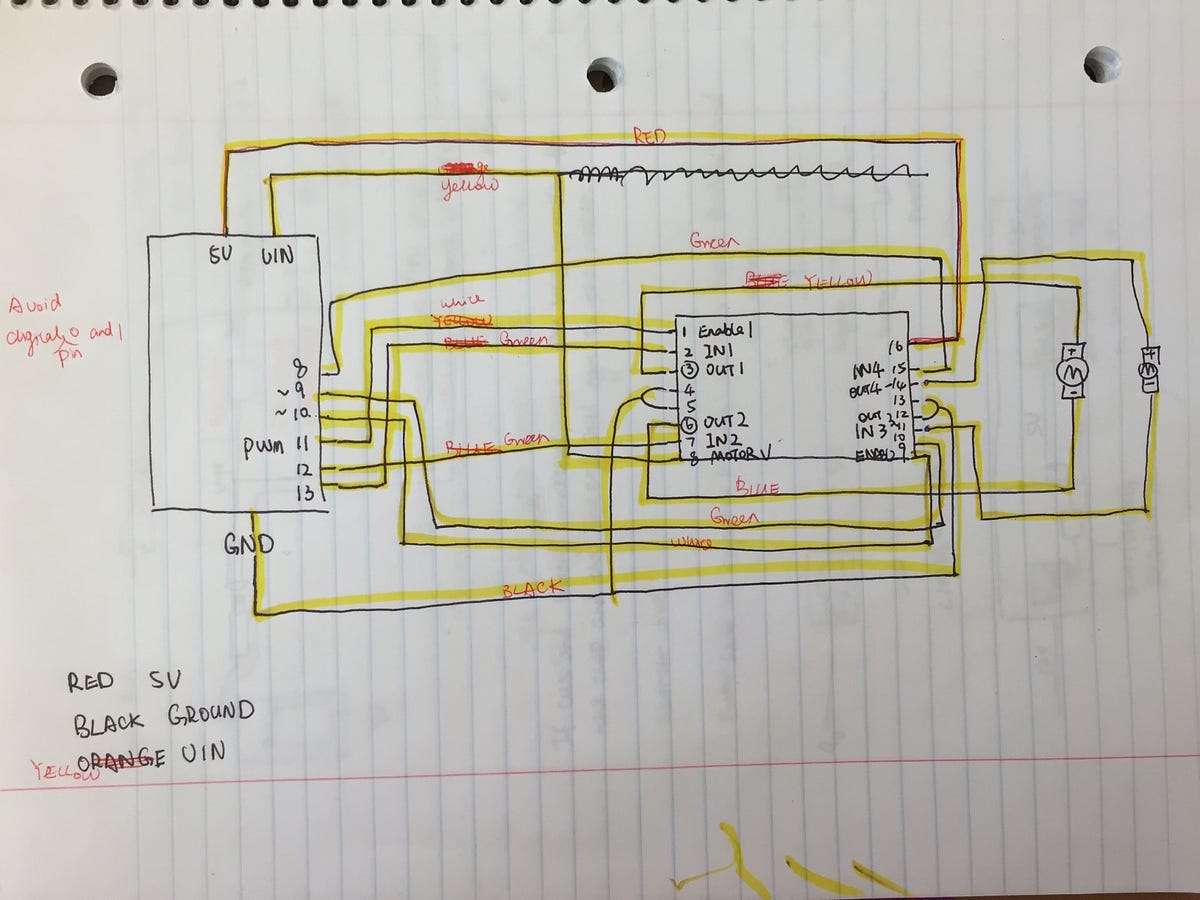 RED
Yellow
Green
YELLOW
5V VIN
Avoid
digital 0 and 1
pin
white
YELLOW
BLUE Green
8
~9
~10
PWM 11
12
13
1 Enable1
2 IN1
3 OUT1
4
5
6 OUT2
7 IN2
8 MOTOR V
16
IN4 15
OUT4 14
13
OUT3 12
IN3 11
10
9
M
M
BLUE Green
BLUE
Green
White
GND
BLACK
RED 5V
BLACK GROUND
YELLOW ORANGE VIN